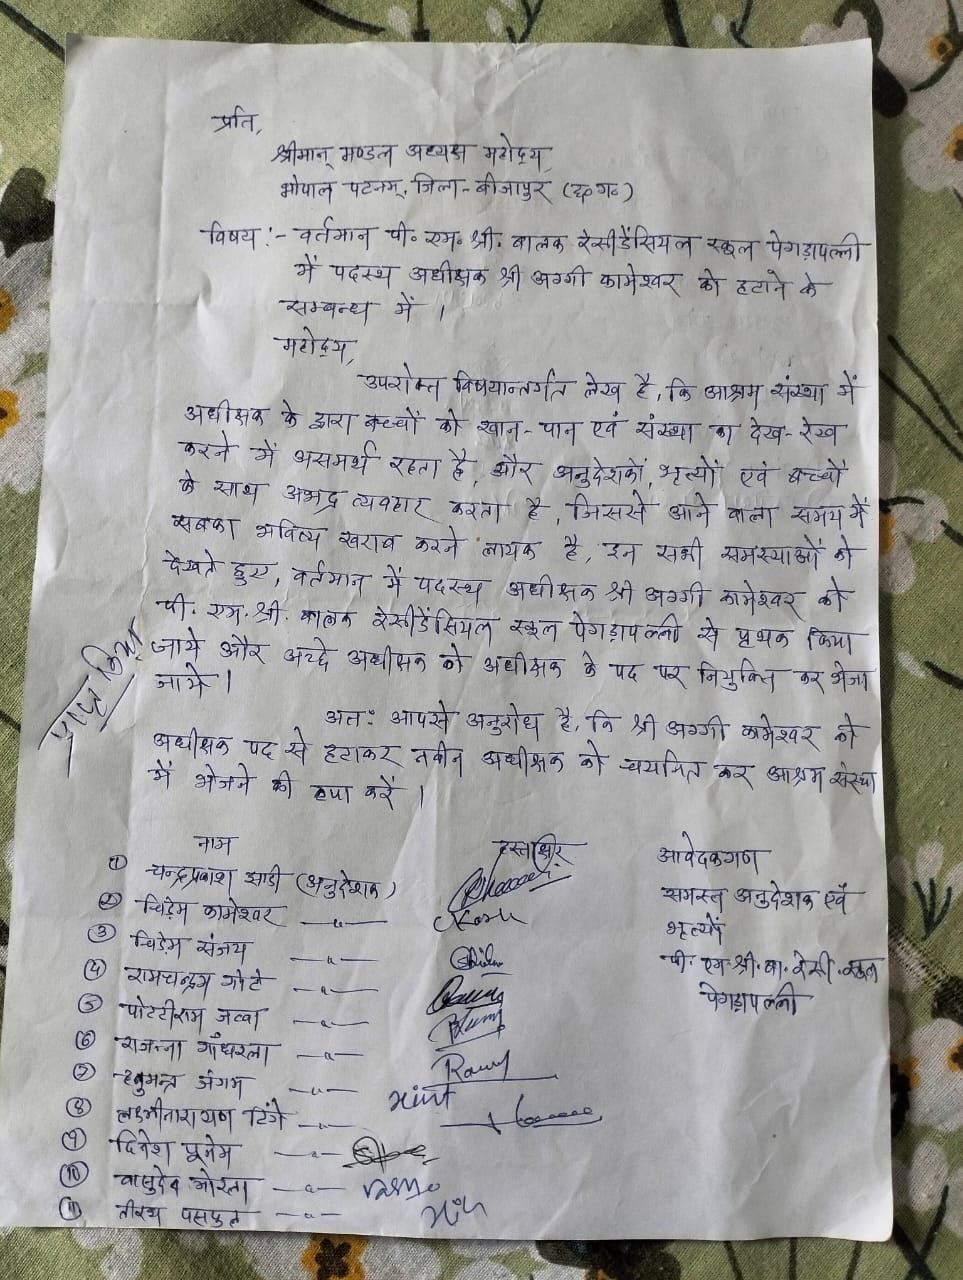 प्रति,
श्रीमान् मण्डल अध्यक्ष महोदय,
भोपाल पटनम्, जिला - बीजापुर (छ०ग०)
विषय :- वर्तमान पी. एम. श्री. बालक रेसीडेंसियल स्कूल पेगड़ापल्ली
में पदस्थ अधीक्षक श्री अग्गी कामेश्वर को हटाने के
सम्बन्ध में ।
महोदय,
उपरोक्त विषयान्तर्गत लेख है, कि आश्रम संस्था में
अधीक्षक के द्वारा बच्चों को खान-पान एवं संस्था का देख-रेख
करने में असमर्थ रहता है, और अनुदेशकों, भृत्यों एवं बच्चों
के साथ अभद्र व्यवहार करता है, जिससे आने वाला समय में
सबका भविष्य खराब करने लायक है, इन सभी समस्याओं को
देखते हुए, वर्तमान में पदस्थ अधीक्षक श्री अग्गी कामेश्वर को
पी. एम. श्री. बालक रेसीडेंसियल स्कूल पेगड़ापल्ली से पृथक किया
जाये और अच्छे अधीक्षक को अधीक्षक के पद पर नियुक्ति कर भेजा
जाये ।
अतः आपसे अनुरोध है, कि श्री अग्गी कामेश्वर को
अधीक्षक पद से हटाकर नवीन अधीक्षक को चयनित कर आश्रम संस्था
में भेजने की कृपा करें ।
नाम हस्ताक्षर
① चन्द्रप्रकाश झाडी (अनुदेशक)
② चिड़ेम कामेश्वर —"—
③ चिड़ेम संजय —"—
④ रामचन्द्रम गोटे —"—
⑤ पोट्टीराम जव्वा —"—
⑥ राजन्ना गाँधरला —"—
⑦ हनुमन्त जंगम —"—
⑧ लक्ष्मीनारायण टिंगे —"—
⑨ दिनेश पूनेम —"—
⑩ वासुदेव मोरला —"—
⑪ तीरथ —"—
आवेदकगण
समस्त अनुदेशक एवं
भृत्यों
पी. एम. श्री. बा. रेसी. स्कूल
पेगड़ापल्ली
प्राप्त किया